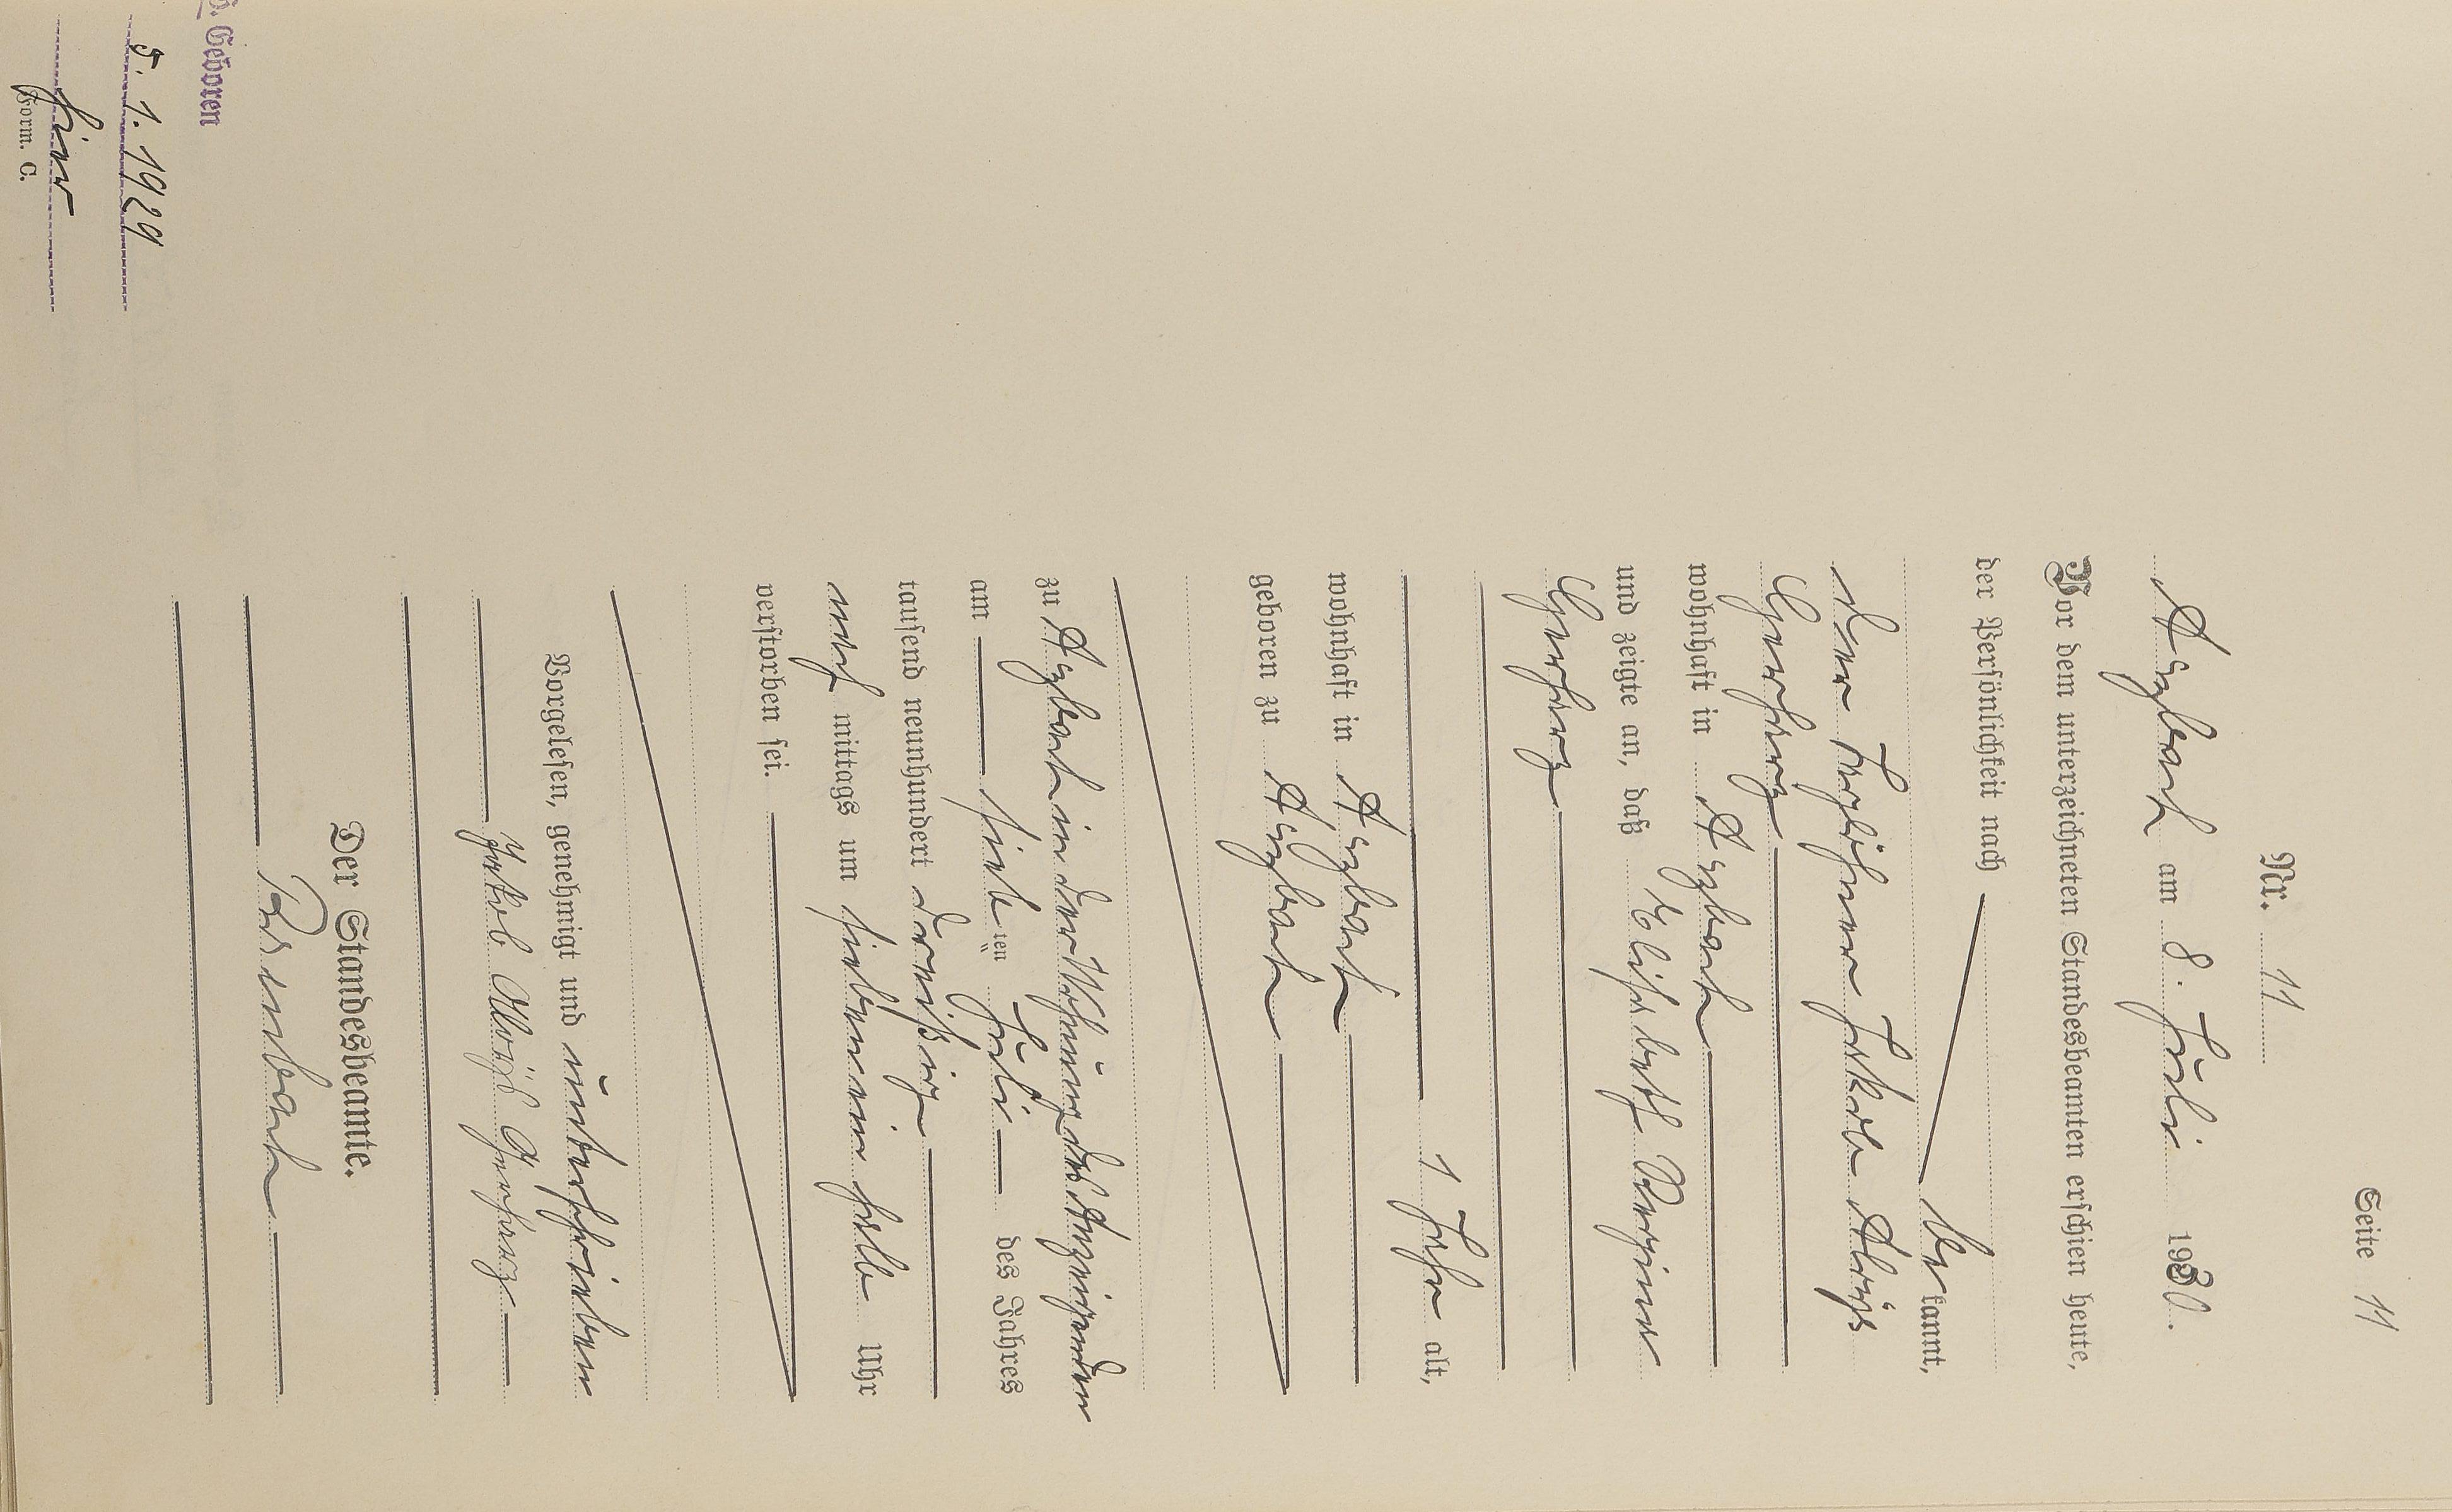 Seite 11
Nr. 11
Arzbach am 8. Juli 1930.
Vor dem unterzeichneten Standesbeamten erschien heute,
der Persönlichkeit nach bekannt,
der Taglöhner Jakob Aloys
Gerharz
wohnhaft in Arzbach
und zeigte an, daß Elisabeth Regina
Gerharz
1 Jahr alt,
wohnhaft in Arzbach
geboren zu Arzbach
zu Arzbach in der Wohnung des Anzeigenden
am siebten Juli des Jahres
tausend neunhundert dreißig,
nach mittags um sieben ein halb Uhr
verstorben sei.
Vorgelesen, genehmigt und unterschrieben
Jakob Aloys Gerharz
Der Standesbeamte.
Geboren
5. 1. 1929
hier
Form. C.